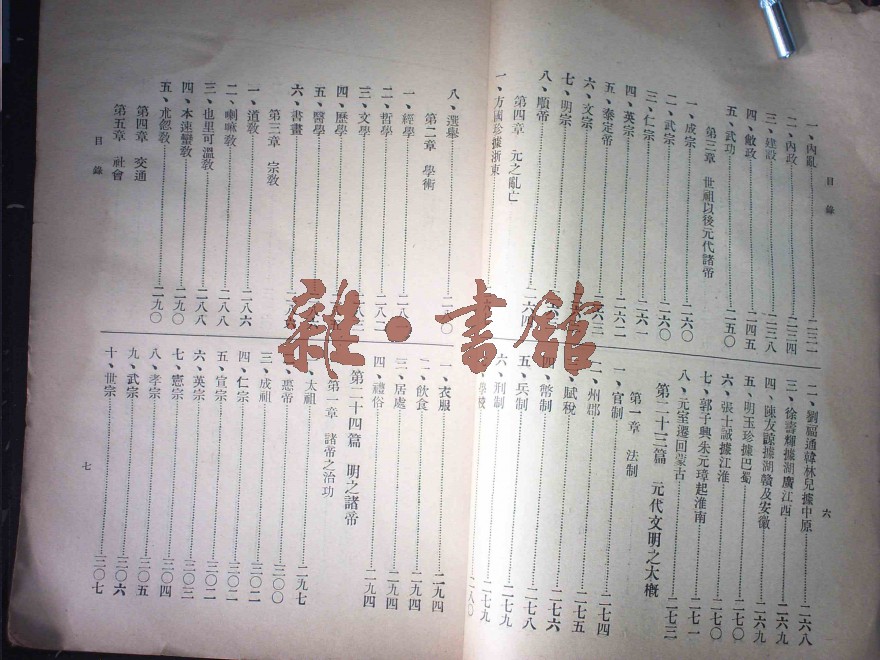 目錄
一、內亂……二三一
二、內政……二三四
三、建設……二三八
四、敝政……二四五
五、武功……二五〇
第三章 世祖以後元代諸帝
一、成宗……二六〇
二、武宗……二六〇
三、仁宗……二六一
四、英宗……二六二
五、泰定帝……二六三
六、文宗……
七、明宗……
八、順帝……二六四
第四章 元之亂亡
一、方國珍據浙東……
二、劉福通韓林兒據中原……二六八
三、徐壽輝據湖廣江西……二六九
四、陳友諒據湖贛及安徽……二六九
五、明玉珍據巴蜀……二七〇
六、張士誠據江淮……二七〇
七、郭子興朱元璋起淮南……二七一
八、元室遷回蒙古……二七三
第二十三篇 元代文明之大概
第一章 法制
一、官制……二七四
二、州郡……二七五
三、賦稅……二七六
四、幣制……二七八
五、兵制……二七八
六、刑制……二七九
學校……二八〇
六
八、選舉……二八〇
第二章 學術
一、經學……二八
二、哲學……二八二
三、文學……二八三
四、歷學……
五、醫學……
六、書畫……二八六
第三章 宗敎
一、道敎……二八六
二、喇嘛敎……二八八
三、也里可溫敎……二八八
四、本速蠻敎……二九〇
五、朮忽敎……二九〇
第四章 交通
第五章 社會
目錄
一、衣服……二九四
二、飲食……二九四
三、居處……二九四
四、禮俗……二九四
第二十四篇 明之諸帝
第一章 諸帝之治功
太祖……二九七
惠帝……三〇〇
三、成祖……三〇二
四、仁宗……三〇二
五、宣宗……三〇二
六、英宗……三〇二
七、憲宗……三〇三
八、孝宗……三〇四
九、武宗……三〇五
十、世宗……三〇六
三〇七
七
雜·書館